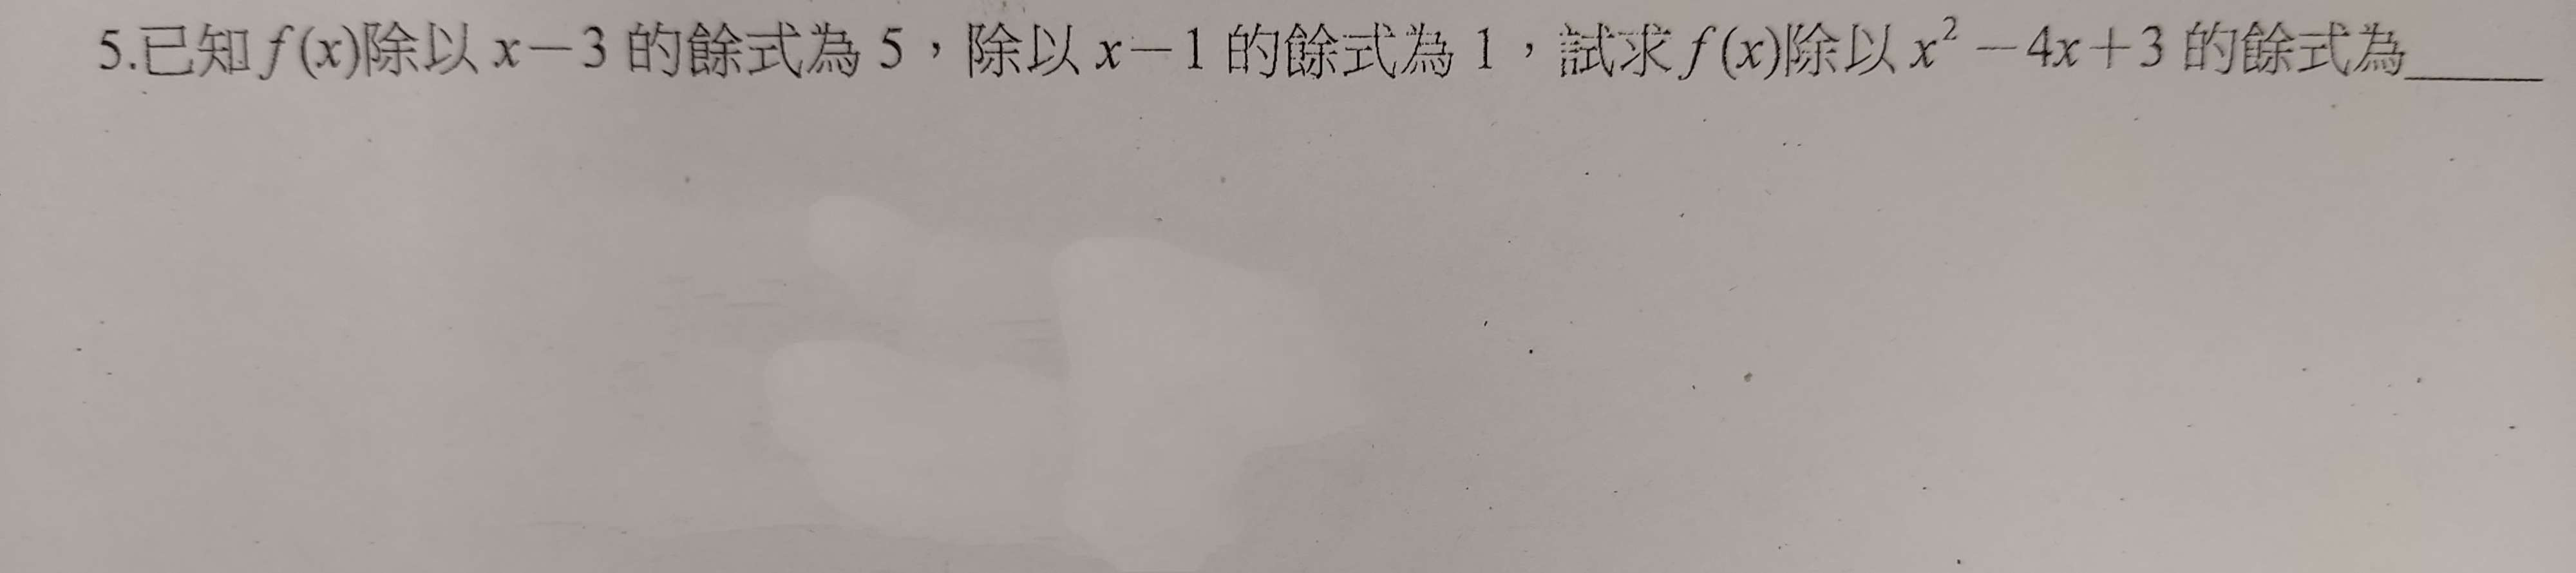 5.已知 f(x)除以 x－3 的餘式為 5，除以 x－1 的餘式為 1，試求 f(x)除以 x²－4x＋3 的餘式為_____